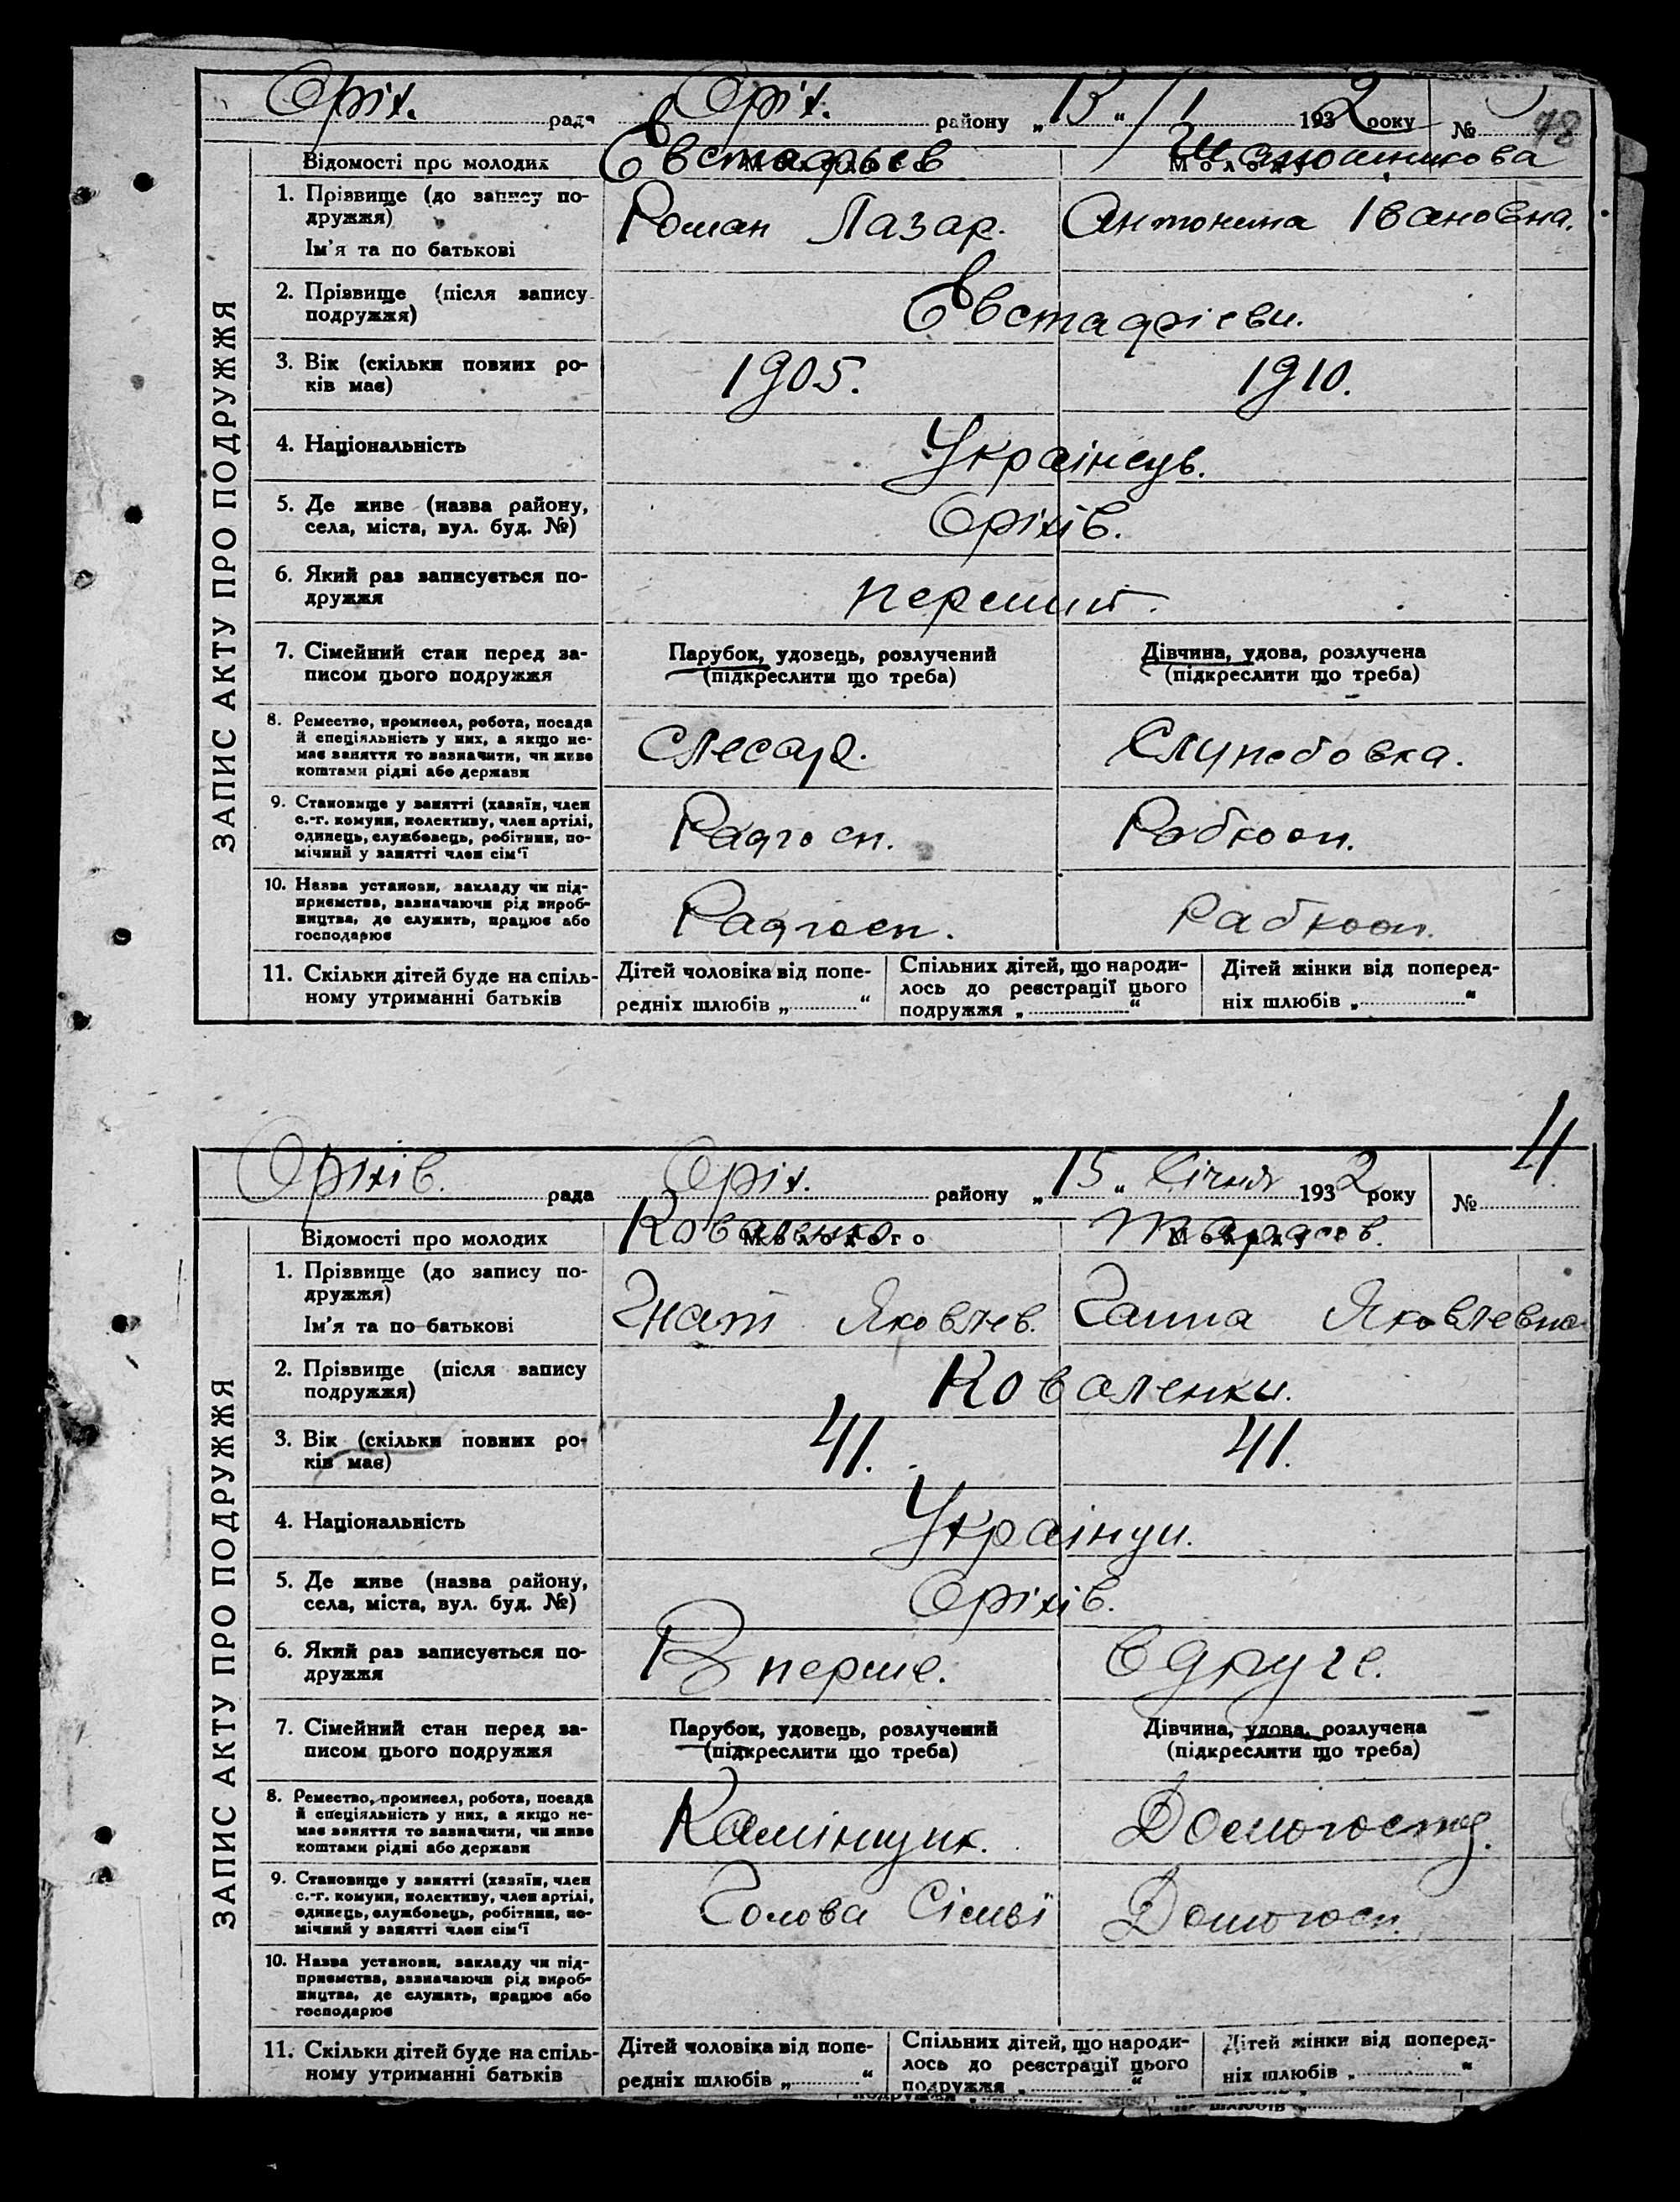 Оріх. рада Оріх. району „13“ /1 1932 року №
48
Відомості про молодих Евстафьев Молоду
1. Прізвище (до запису подружжя)
Ім'я та по батькові
Роман Лазар. Антонина Івановна.
2. Прізвище (після запису подружжя)
Евстафієви.
3. Вік (скільки повних років має)
1905. 1910.
4. Національність
Українець.
5. Де живе (назва району, села, міста, вул. буд. №)
Оріхів.
6. Який раз записується подружжя
перший.
7. Сімейний стан перед записом цього подружжя
Парубок, удовець, розлучений (підкреслити що треба)
Дівчина, удова, розлучена (підкреслити що треба)
8. Ремество, промисел, робота, посада й спеціяльність у них, а якщо немає заняття то зазначити, чи живе коштами рідні або держави
Слесар.
9. Становище у занятті (хазяїн, член с.-г. комуни, колективу, член артілі, одинець, службовець, робітник, помічний у занятті член сім'ї
Радгосп. Рабкооп.
10. Назва установи, закладу чи підприємства, зазначаючи рід виробництва, де служить, працює або господарює
Радгосп. Рабкооп.
11. Скільки дітей буде на спільному утриманні батьків
Дітей чоловіка від попередніх шлюбів „ “
Спільних дітей, що народилось до реєстрації цього подружжя „ “
Дітей жінки від попередніх шлюбів „ “
ЗАПИС АКТУ ПРО ПОДРУЖЖЯ
Оріхів. рада Оріх. району „15“ Січня 1932 року № 4
Відомості про молодих Коваленко Молодого Тарасов. Молоду
1. Прізвище (до запису подружжя)
Ім'я та по батькові
Гнат Яковлев. Ганна Яковлевна
2. Прізвище (після запису подружжя)
Коваленки.
3. Вік (скільки повних років має)
41. 41.
4. Національність
Українци.
5. Де живе (назва району, села, міста, вул. буд. №)
Оріхів.
6. Який раз записується подружжя
Вперше. Вдруге.
7. Сімейний стан перед записом цього подружжя
Парубок, удовець, розлучений (підкреслити що треба)
Дівчина, удова, розлучена (підкреслити що треба)
8. Ремество, промисел, робота, посада й спеціяльність у них, а якщо немає заняття то зазначити, чи живе коштами рідні або держави
Камінщик. Домогосп.
9. Становище у занятті (хазяїн, член с.-г. комуни, колективу, член артілі, одинець, службовець, робітник, помічний у занятті член сім'ї
Голова Сімьї Домогосп.
10. Назва установи, закладу чи підприємства, зазначаючи рід виробництва, де служить, працює або господарює
11. Скільки дітей буде на спільному утриманні батьків
Дітей чоловіка від попередніх шлюбів „ “
Спільних дітей, що народилось до реєстрації цього подружжя „ “
Дітей жінки від попередніх шлюбів „ “
ЗАПИС АКТУ ПРО ПОДРУЖЖЯ